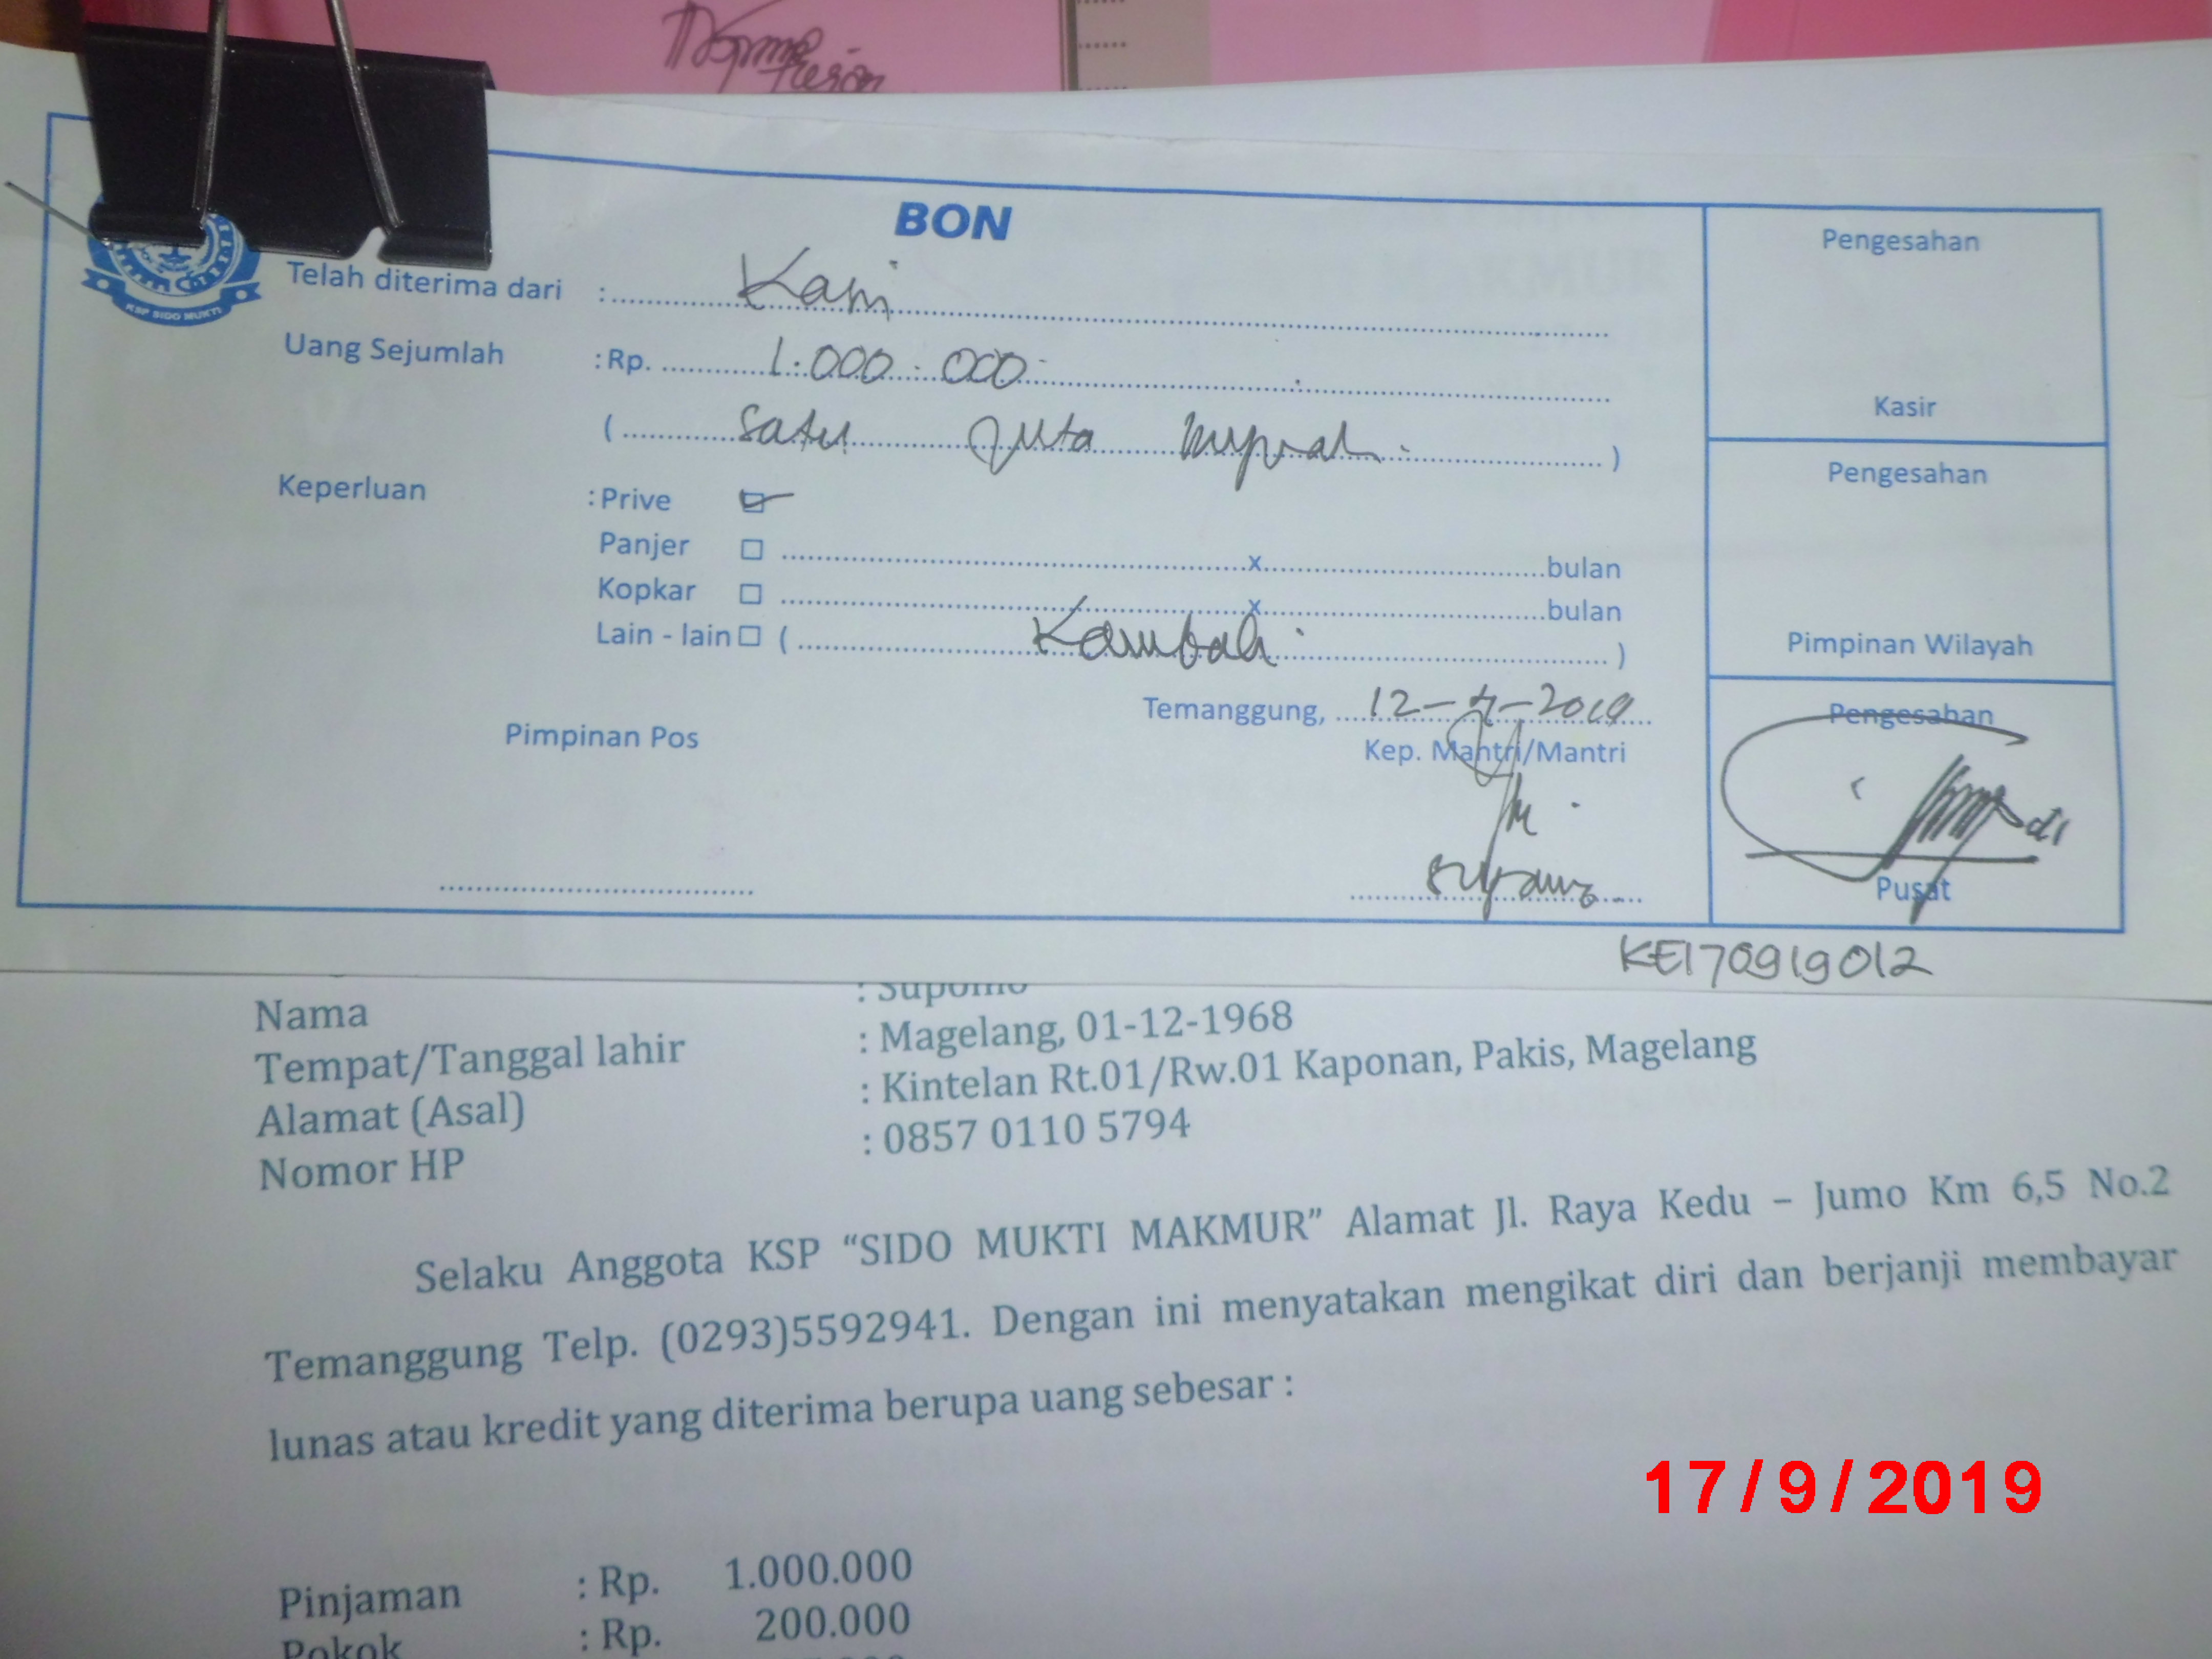 BON
KSP SIDO MUKTI
Telah diterima dari :
Uang Sejumlah : Rp. 1.000.000
( Satu Juta Rupiah. )
Keperluan : Prive
Panjer x bulan
Kopkar x bulan
Lain - lain ( Kambali )
Temanggung, 12-9-2019
Pimpinan Pos
Kep. Mantri/Mantri
Pengesahan
Kasir
Pengesahan
Pimpinan Wilayah
Pengesahan
Pusat
KE170919012
Nama : Supomo
Tempat/Tanggal lahir : Magelang, 01-12-1968
Alamat (Asal) : Kintelan Rt.01/Rw.01 Kaponan, Pakis, Magelang
Nomor HP : 0857 0110 5794
Selaku Anggota KSP “SIDO MUKTI MAKMUR” Alamat Jl. Raya Kedu – Jumo Km 6,5 No.2
Temanggung Telp. (0293)5592941. Dengan ini menyatakan mengikat diri dan berjanji membayar
lunas atau kredit yang diterima berupa uang sebesar :
Pinjaman : Rp. 1.000.000
Pokok : Rp. 200.000
17/9/2019